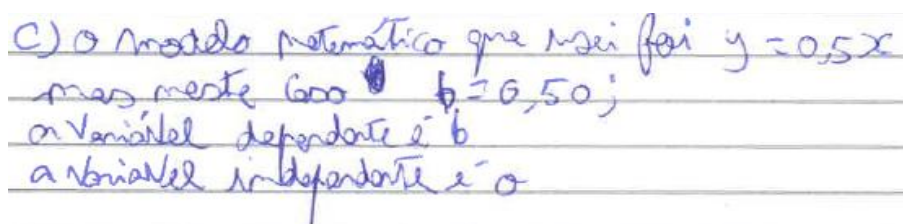 C) o modelo matemático que usei foi y = 0,5x
mas neste caso b = 0,5o;
a variável dependente é b
a variável independente é o